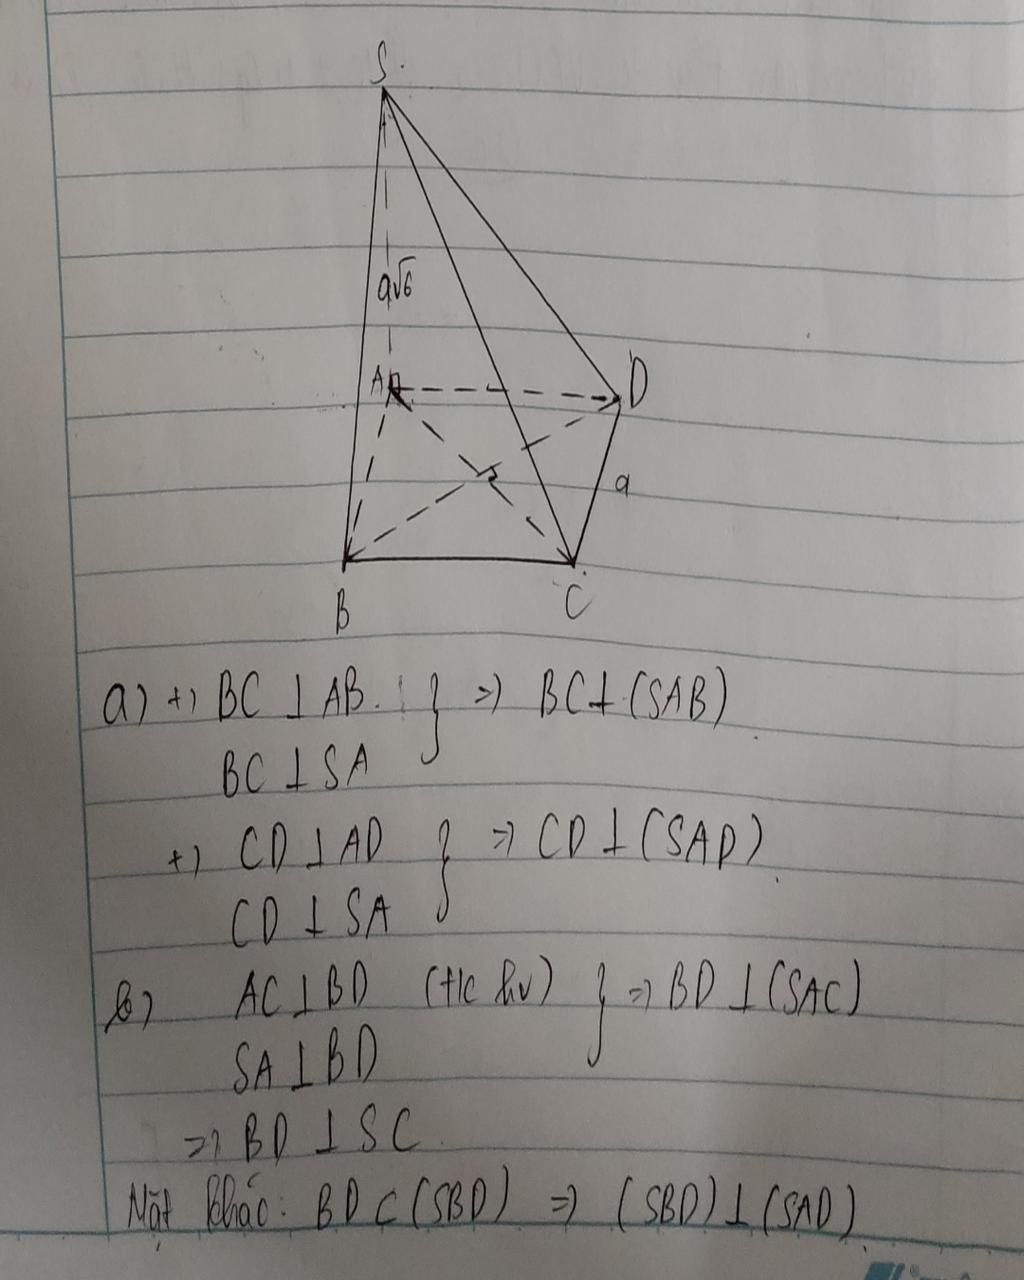 S
a√6
A
D
a
B
C
a) +) BC ⊥ AB. } => BC ⊥ (SAB)
BC ⊥ SA
+) CD ⊥ AD } => CD ⊥ (SAD)
CD ⊥ SA
b) AC ⊥ BD (t/c hv) } => BD ⊥ (SAC)
SA ⊥ BD
=> BD ⊥ SC
Mặt khác: BD ⊂ (SBD) => (SBD) ⊥ (SAD)